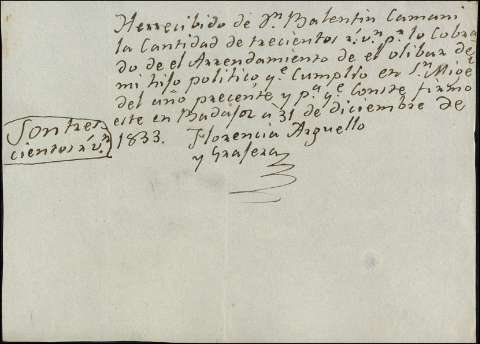 Herrecibido de Dn Balentin Camani
la Cantidad de trecientos r.s v.n p.r lo Cobra
do de el Arrendamiento de el olibar de
mi hijo politico q.e Cumplio en S.n Mig.l
del año precente y p.a q.e Conste firmo
este en Badajos à 31 de diciembre de
1833. Florencia Arguello
y Grasera
Son tres
cientos r.s v.n